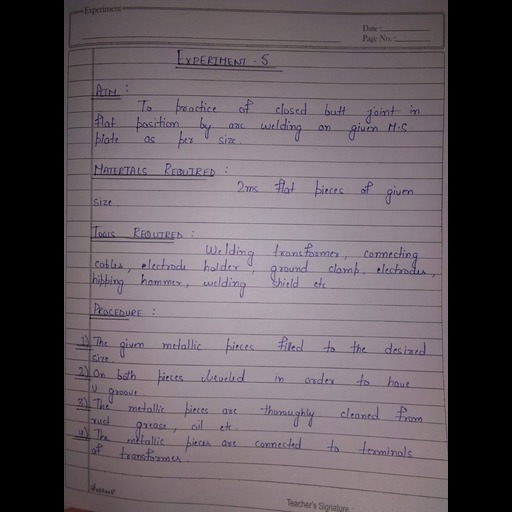 Experiment
Date :
Page No. :
EXPERIMENT - 5
AIM :
To practice of closed butt joint in
flat position by arc welding on given M.S
plate as per size.
MATERIALS REQUIRED :
2ms flat pieces of given
size.
TOOLS REQUIRED :
Welding transformer, connecting
cables, electrode holder, ground clamp, electrodes,
hipping hammer, welding shield etc
PROCEDURE :
1) The given metallic pieces filled to the desired
size.
2) On both pieces beveled in order to have
V groove.
3) The metallic pieces are thoroughly cleaned from
rust grease, oil etc.
4) The metallic pieces are connected to terminals
of transformer.
Teacher's Signature :